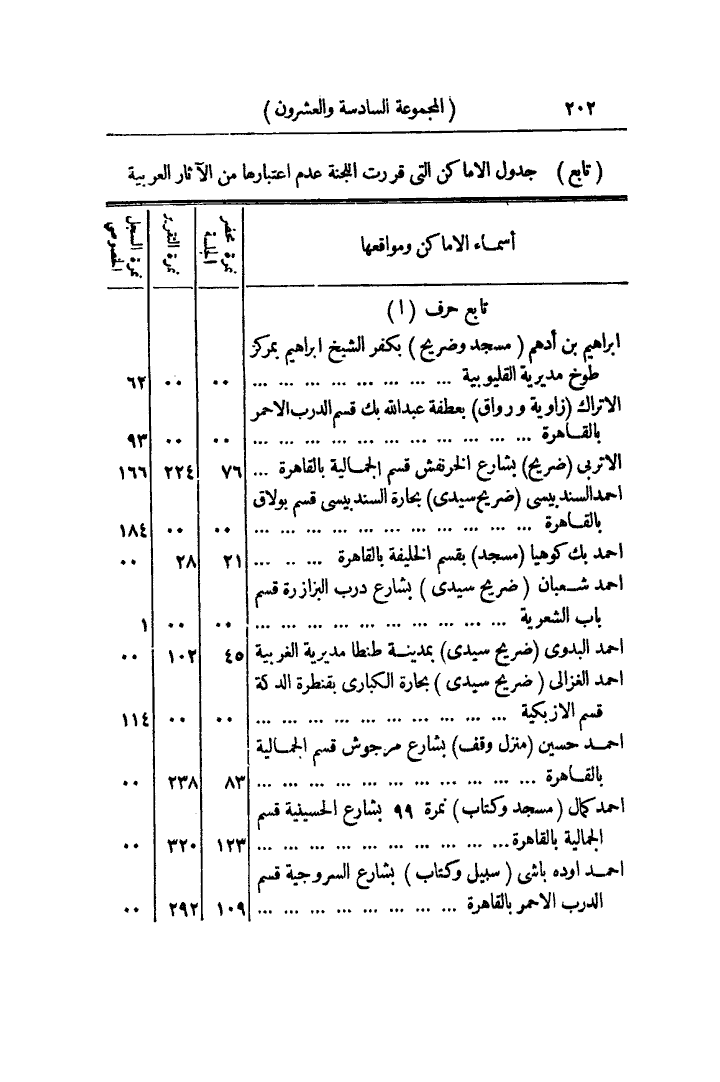 ٢٠٢ ( المجموعة السادسة والعشرون )
( تابع ) جدول الاماكن التى قررت اللجنة عدم اعتبارها من الآثار العربية
أسماء الاماكن ومواقعها نمرة محضر الجلسة نمرة التقرير نمرة السجل الخصوصى
تابع حرف ( ا )
ابراهيم بن أدهم ( مسجد وضريح ) بكفر الشيخ ابراهيم بمركز
طوخ مديرية القليوبية ... ... ... ... ... ... ... ... ٠٠ ٠٠ ٦٢
الاتراك (زاوية ورواق) بعطفة عبدالله بك قسم الدرب الاحمر
بالقاهرة ... ... ... ... ... ... ... ... ... ... ... ٠٠ ٠٠ ٩٣
الاتربى (ضريح) بشارع الخرنفش قسم الجمالية بالقاهرة ... ٧٦ ٢٢٤ ١٦٦
احمد السندبيسى (ضريح سيدى) بحارة السندبيسى قسم بولاق
بالقاهرة ... ... ... ... ... ... ... ... ... ... ... ٠٠ ٠٠ ١٨٤
احمد بك كوهيا (مسجد) بقسم الخليفة بالقاهرة ... .. ... ٢١ ٢٨ ٠٠
احمد شعبان ( ضريح سيدى ) بشارع درب البزازرة قسم
باب الشعرية ... ... ... ... ... ... ... ... ... ... ٠٠ ٠٠ ١
احمد البدوى (ضريح سيدى) بمدينة طنطا مديرية الغربية ٤٥ ١٠٢ ٠٠
احمد الغزالى ( ضريح سيدى ) بحارة الكبارى بقنطرة الدكة
قسم الازبكية ... ... ... ... ... ... ... ... ... ... ٠٠ ٠٠ ١١٤
احمد حسين (منزل وقف) بشارع مرجوش قسم الجمالية
بالقاهرة ... ... ... ... ... ... ... ... ... ... ... ٨٣ ٢٣٨ ٠٠
احمد كمال ( مسجد وكتاب ) نمرة ٩٩ بشارع الحسينية قسم
الجمالية بالقاهرة... ... ... ... ... ... ... ... ... ... ١٢٣ ٣٢٠ ٠٠
احمد اوده باشى ( سبيل وكتاب ) بشارع السروجية قسم
الدرب الاحمر بالقاهرة ... ... ... ... ... ... ... ... ١٠٩ ٢٩٢ ٠٠